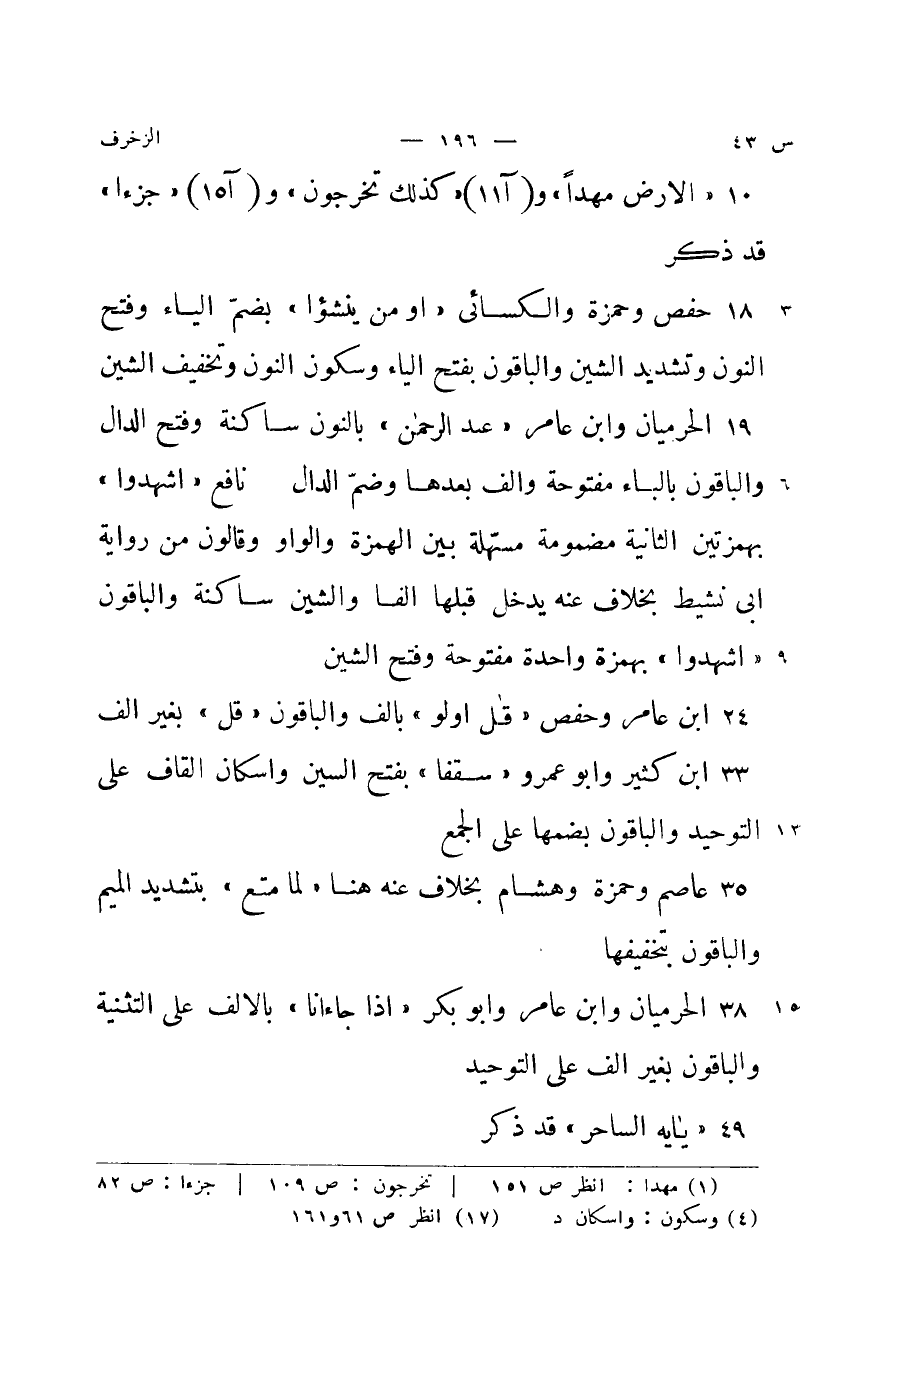 س ٤٣ — ١٩٦ — الزخرف
١٠ « الارض مهداً » و(آ١١)« كذلك تخرجون » و (آ١٥) « جزءا »
قد ذكر
٣ ١٨ حفص وحمزة والكسائى « او من ينشؤا » بضمّ الياء وفتح
النون وتشديد الشين والباقون بفتح الياء وسكون النون وتخفيف الشين
١٩ الحرميان وابن عامر « عند الرحمٰن » بالنون ساكنة وفتح الدال
٦ والباقون بالباء مفتوحة والف بعدها وضمّ الدال نافع « اشهدوا »
بهمزتين الثانية مضمومة مسهّلة بين الهمزة والواو وقالون من رواية
ابى نشيط بخلاف عنه يدخل قبلها الفا والشين ساكنة والباقون
٩ « اشهدوا » بهمزة واحدة مفتوحة وفتح الشين
٢٤ ابن عامر وحفص « قٰل اولو » بالف والباقون « قل » بغير الف
٣٣ ابن كثير وابو عمرو « سقفا » بفتح السين واسكان القاف على
١٢ التوحيد والباقون بضمها على الجمع
٣٥ عاصم وحمزة وهشام بخلاف عنه هنا « لما متع » بتشديد الميم
والباقون بتخفيفها
١٥ ٣٨ الحرميان وابن عامر وابو بكر « اذا جاءانا » بالالف على التثنية
والباقون بغير الف على التوحيد
٤٩ « يٰايه الساحر » قد ذكر
(١) مهدا : انظر ص ١٥١ | تخرجون : ص ١٠٩ | جزءا : ص ٨٢
(٤) وسكون : واسكان د (١٧) انظر ص ٦١ و١٦١